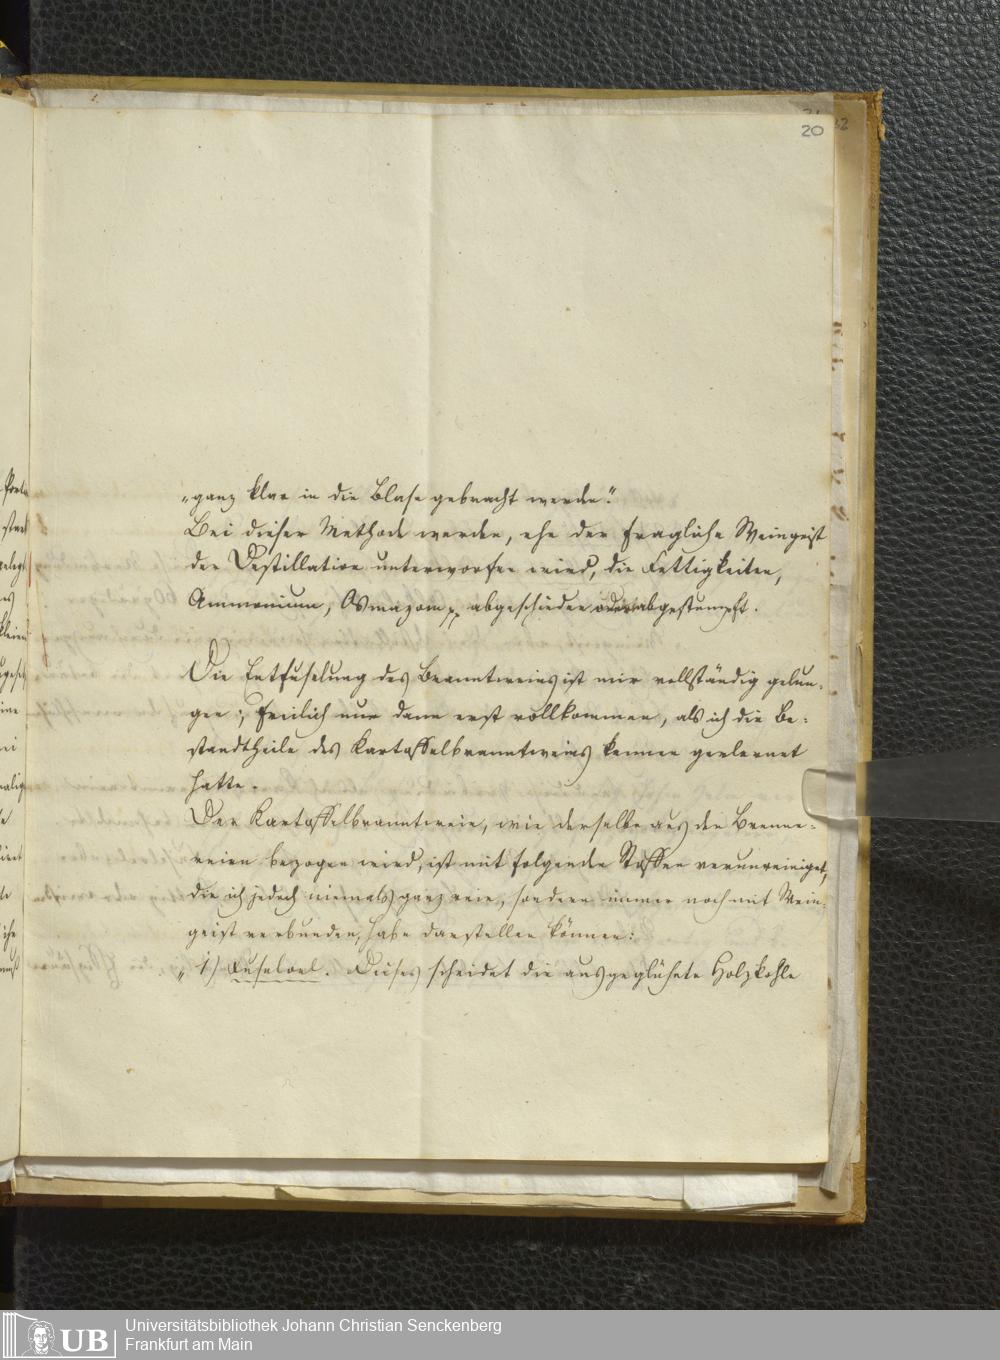 20
„ganz klar in die Blase gebracht werde."
Bei dieser Methode werden, ehe der fragliche Weingeist
der Destillation unterworfen wird, die Fettigkeiten,
Ammonium, Osmazom pp abgeschieden oder abgestumpft.
Die Entfuselung des Branntweins ist mir vollständig gelun-
gen; freilich nur dann erst vollkommen, als ich die Be-
standtheile des Kartoffelbranntweins kennen gelernet
hatte.
Der Kartoffelbranntwein, wie derselbe aus den Brenne-
reien bezogen wird, ist mit folgenden Stoffen verunreiniget,
die ich jedoch niemals ganz rein, sondern immer noch mit Wein-
geist verbunden, habe darstellen können:
„1) Fuseloel. Dieses scheidet die ausgeglühete Holzkohle
UB
Universitätsbibliothek Johann Christian Senckenberg
Frankfurt am Main